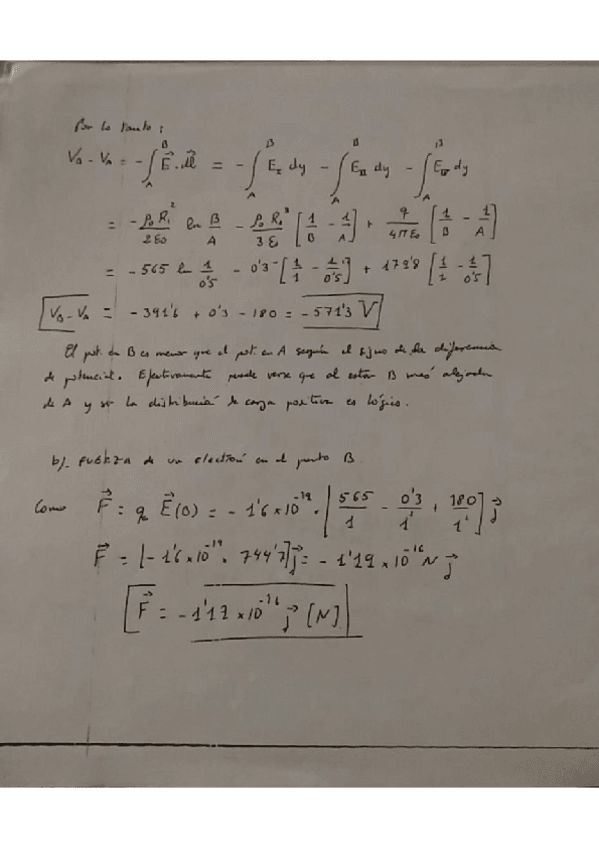 Por lo tanto:
V_B - V_A = -∫_A^B E⃗·dl⃗ = -∫_A^B E_I dy - ∫_A^B E_II dy - ∫_A^B E_III dy
= -ρ₀R₁²/2ε₀ ln B/A - ρ₀R₀³/3ε₀ [1/B - 1/A] + q/4πε₀ [1/B - 1/A]
= -565 ln 1/0'5 - 0'3 [1/1 - 1/0'5] + 179'8 [1/1 - 1/0'5]
V_B - V_A = -391'6 + 0'3 - 180 = -571'3 V
El pot. en B es menor que el pot. en A según el signo de la diferencia
de potencial. Efectivamente puede verse que al estar B más alejado
de A y ser la distribución de carga positiva es lógico.
b). FUERZA de un electrón en el punto B.
Como F⃗ = q E⃗(B) = -1'6×10⁻¹⁹ · [565/1 - 0'3/1² + 180/1²] j⃗
F⃗ = [-1'6×10⁻¹⁹ · 744'7] j⃗ = -1'19×10⁻¹⁶ N j⃗
F⃗ = -1'19×10⁻¹⁶ j⃗ [N]